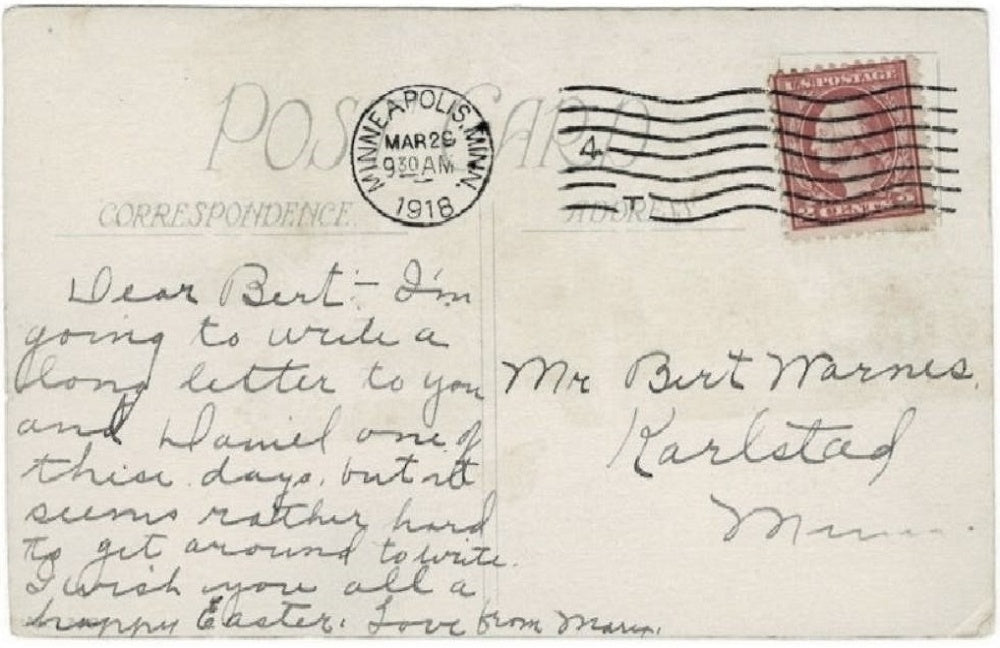 POST CARD
MINNEAPOLIS, MINN.
MAR 29
9 30 AM
1918
4
T
U.S. POSTAGE
2 CENTS 2
CORRESPONDENCE
ADDRESS
Dear Bert:- I'm
going to write a
long letter to you
and Daniel one of
these days, but it
seems rather hard
to get around to write.
I wish you all a
happy Easter. Love from Marie.
Mr Bert Warnes.
Karlstad
Minn.